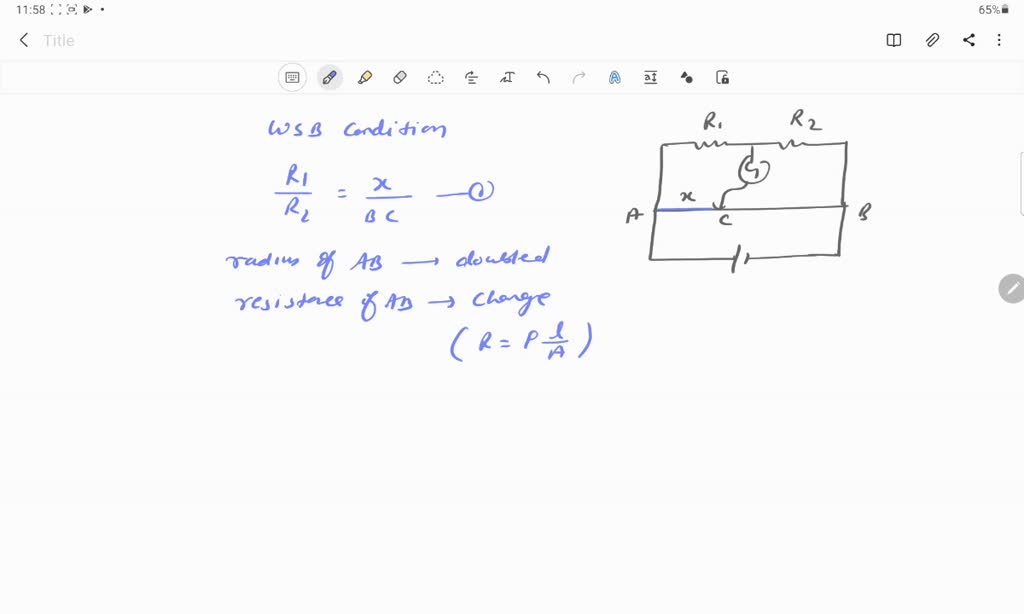 11:58
65%
Title
WSB Condition
R1/R2 = x/BC —①
radius of AB → doubled
resistance of AB → Change
(R = ρ l/A)
R1 R2
G
x
A C B